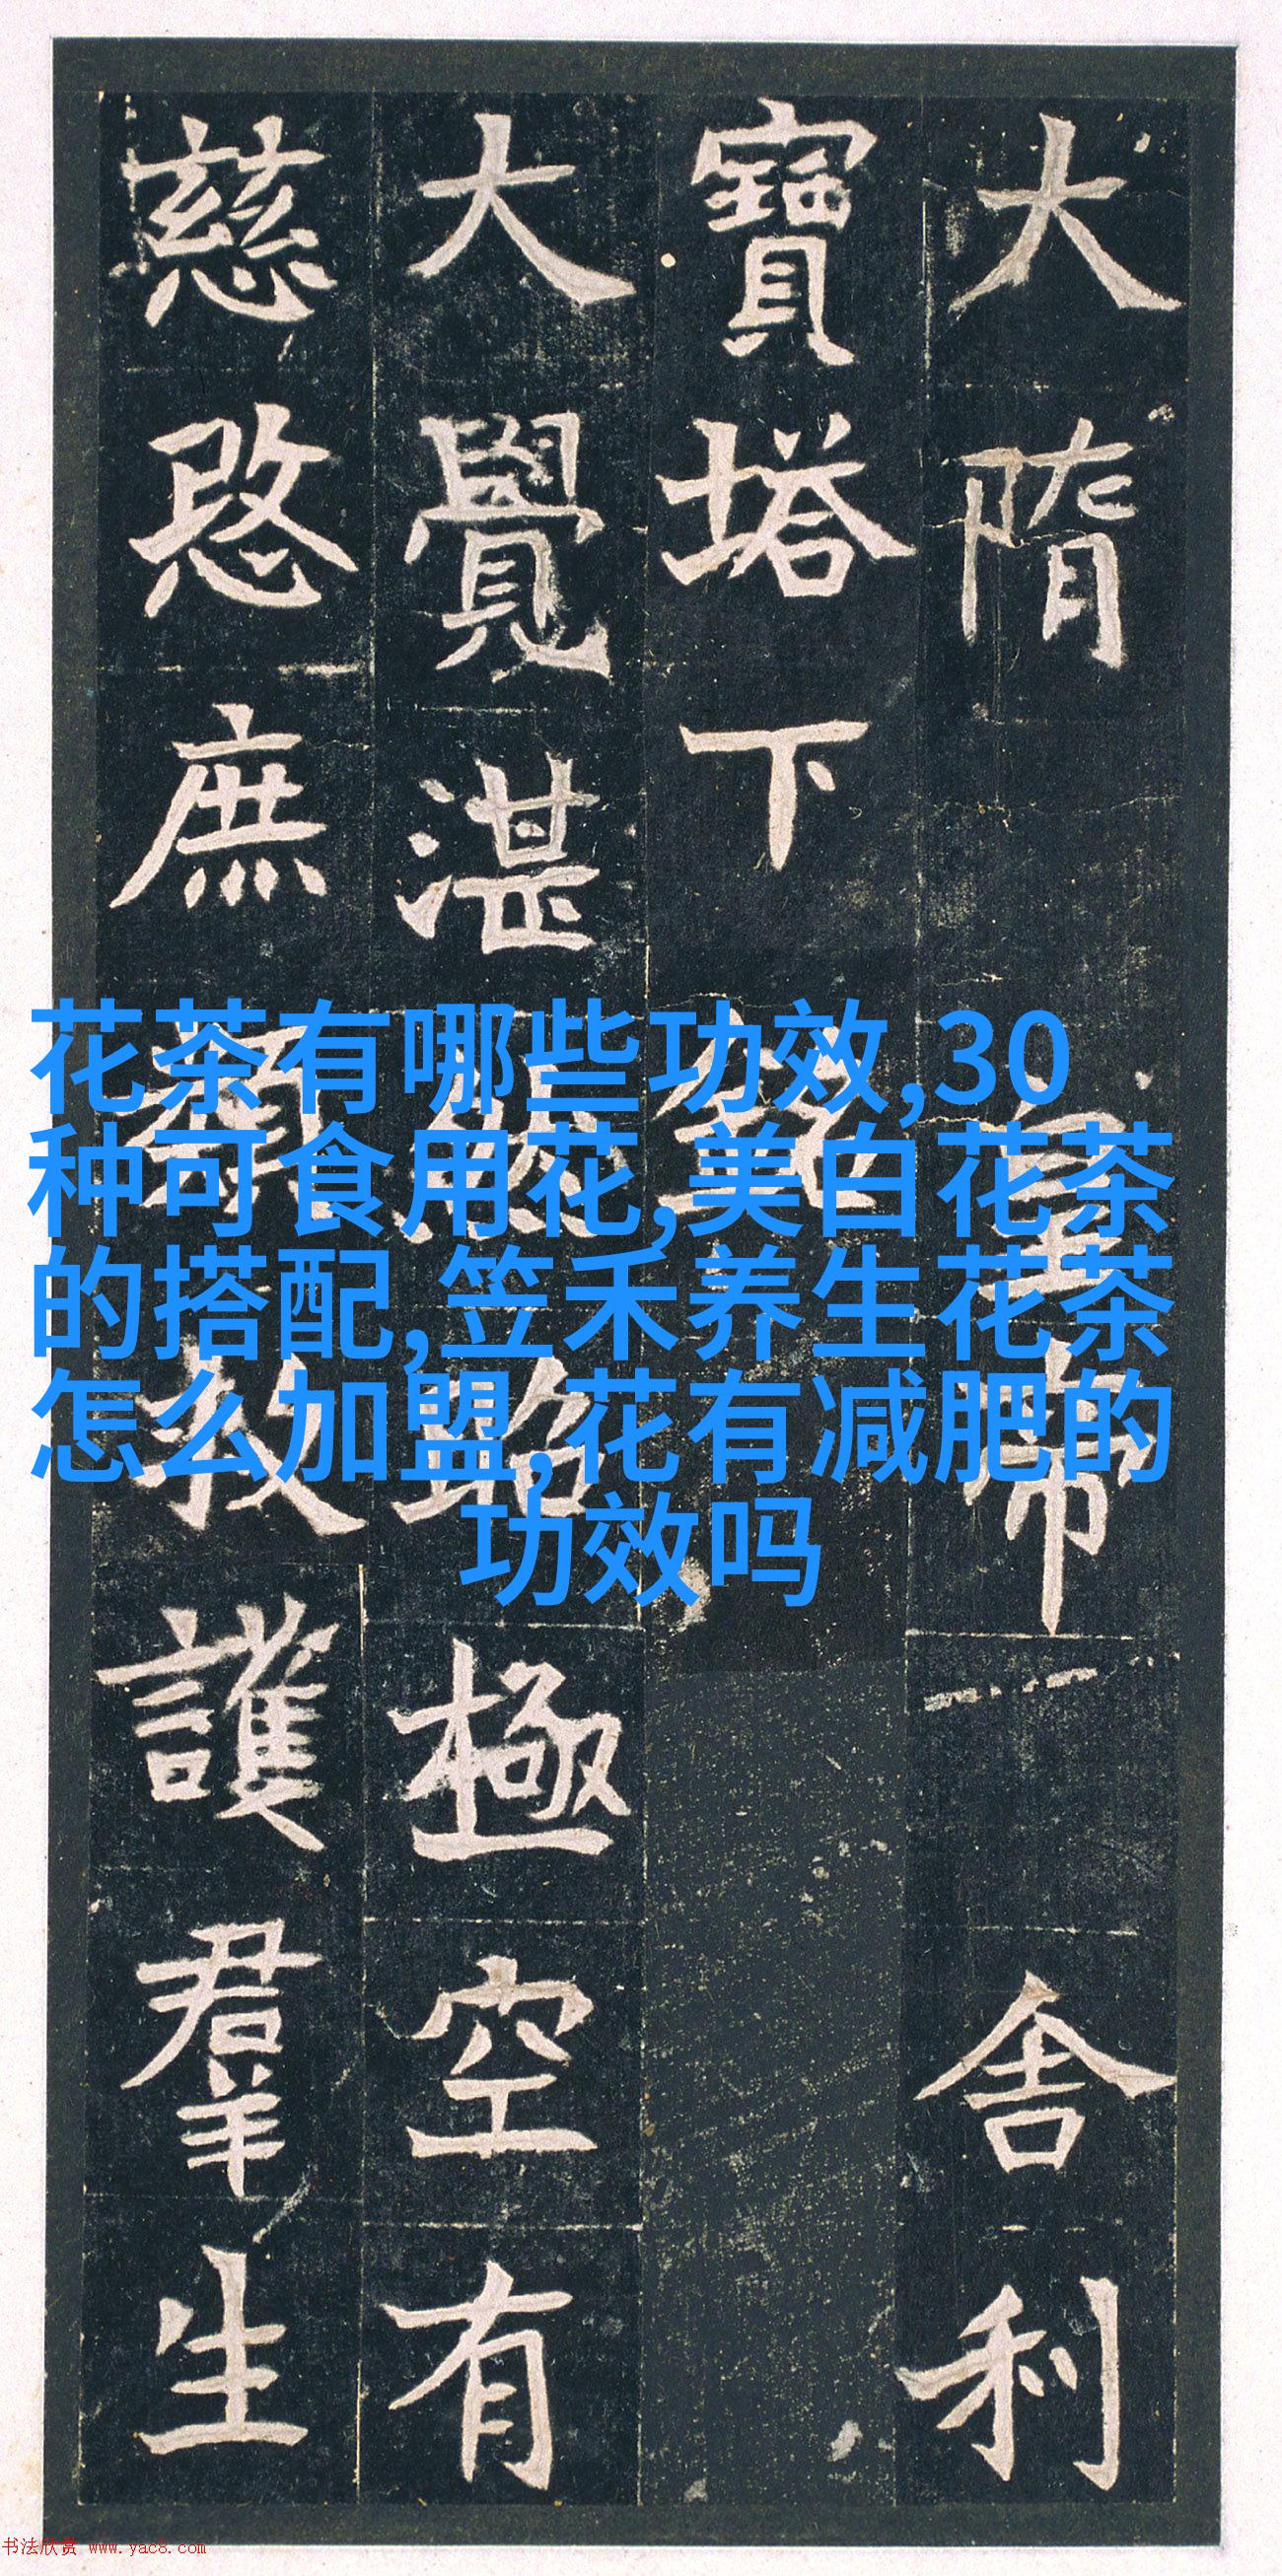 大隋皇帝舍利
寶塔下銘
大覺湛然昭極空有
慈愍庶類救護羣生
花茶有哪些功效,30
种可食用花,美白花茶
的搭配,笠禾养生花茶
怎么加盟,花有减肥的
功效吗
书法欣赏 www.yac8.com